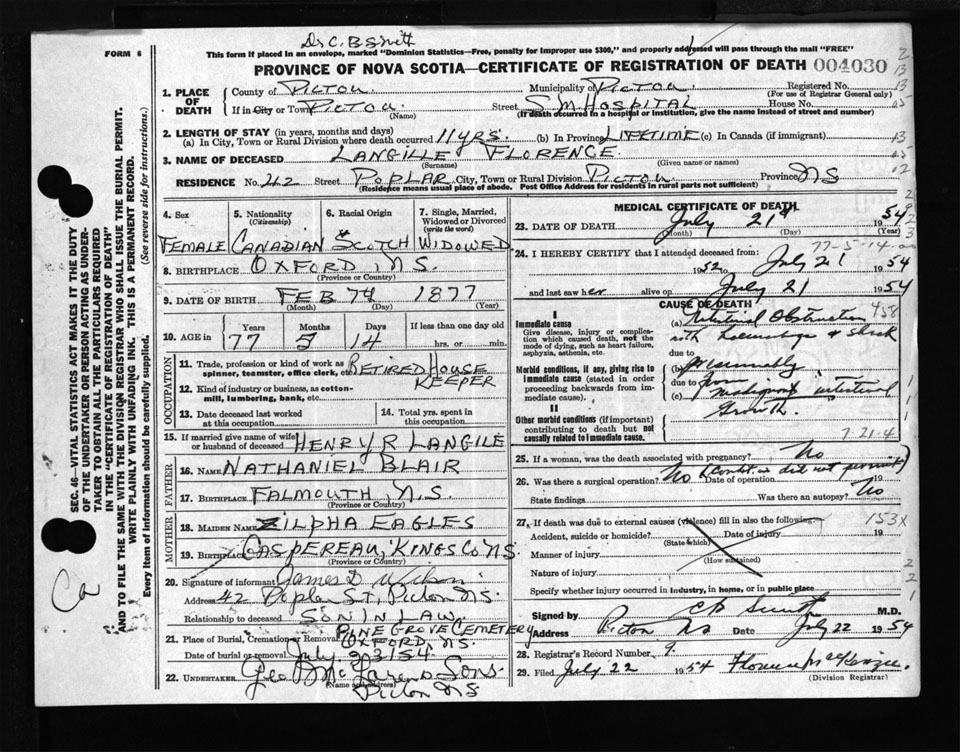 Dr C. B. Smith
FORM 6
This form if placed in an envelope, marked "Dominion Statistics—Free, penalty for improper use $300," and properly addressed will pass through the mail "FREE"
PROVINCE OF NOVA SCOTIA—CERTIFICATE OF REGISTRATION OF DEATH 004030
SEC. 46—VITAL STATISTICS ACT MAKES IT THE DUTY OF THE UNDERTAKER OR PERSON ACTING AS UNDERTAKER TO OBTAIN ALL THE PARTICULARS REQUIRED IN THE "CERTIFICATE OF REGISTRATION OF DEATH" AND TO FILE THE SAME WITH THE DIVISION REGISTRAR WHO SHALL ISSUE THE BURIAL PERMIT.
WRITE PLAINLY WITH UNFADING INK. THIS IS A PERMANENT RECORD.
Every item of information should be carefully supplied. (See reverse side for instructions.)
Ca
1. PLACE OF DEATH
County of PICTOU. Municipality of PICTOU. Registered No.
(For use of Registrar General only)
If in City or Town PICTOU. Street S.M. HOSPITAL House No.
(Name) (If death occurred in a hospital or institution, give the name instead of street and number)
2. LENGTH OF STAY (in years, months and days)
(a) In City, Town or Rural Division where death occurred 11 YRS. (b) In Province LIFETIME (c) In Canada (if immigrant)
3. NAME OF DECEASED LANGILLE FLORENCE.
(Surname) (Given name or names)
RESIDENCE No. 42 Street POPLAR City, Town or Rural Division PICTOU. Province NS
(Residence means usual place of abode. Post Office Address for residents in rural parts not sufficient)
4. Sex 5. Nationality (Citizenship) 6. Racial Origin 7. Single, Married, Widowed or Divorced (write the word)
FEMALE CANADIAN SCOTCH WIDOWED
8. BIRTHPLACE OXFORD, N.S.
(Province or Country)
9. DATE OF BIRTH FEB 7TH 1877
(Month) (Day) (Year)
10. AGE in Years Months Days If less than one day old
77 5 14 hrs. or min.
OCCUPATION
11. Trade, profession or kind of work as spinner, teamster, office clerk, etc. RETIRED HOUSE KEEPER
12. Kind of industry or business, as cotton-mill, lumbering, bank, etc.
13. Date deceased last worked at this occupation
14. Total yrs. spent in this occupation
15. If married give name of wife or husband of deceased HENRY R LANGILLE
FATHER
16. NAME NATHANIEL BLAIR
17. BIRTHPLACE FALMOUTH, N.S.
(Province or Country)
MOTHER
18. MAIDEN NAME ZILPHA EAGLES
19. BIRTHPLACE GASPEREAU, KINGS CO NS.
(Province or Country)
20. Signature of informant James D Wilson
Address 42 Poplar ST, Pictou NS.
Relationship to deceased SON IN LAW.
21. Place of Burial, Cremation or Removal PINE GROVE CEMETERY OXFORD, NS.
Date of burial or removal July. 23/54.
22. UNDERTAKER Geo D McLaren & Sons.
(Name and address)
Pictou NS
MEDICAL CERTIFICATE OF DEATH
23. DATE OF DEATH July 21st 1954
(Month) (Day) (Year)
77-5-14-00
24. I HEREBY CERTIFY that I attended deceased from:
1952 to July 21 1954
and last saw her alive on July 21 1954
CAUSE OF DEATH
I
Immediate cause
Give disease, injury or complication which caused death, not the mode of dying, such as heart failure, asphyxia, asthenia, etc.
(a) Intestinal Obstruction 458
with hemorrhage & shock
due to
Morbid conditions, if any, giving rise to immediate cause (stated in order proceeding backwards from immediate cause).
(b) presumably
due to from
(c) malignant intestinal
growth.
II
Other morbid conditions (if important) contributing to death but not causally related to immediate cause.
7-21-4
25. If a woman, was the death associated with pregnancy? No
26. Was there a surgical operation? No (Condition did not permit) Date of operation
State findings Was there an autopsy? No
27. If death was due to external causes (violence) fill in also the following— 153X
Accident, suicide or homicide? Date of injury
(State which)
Manner of injury
(How sustained)
Nature of injury
Specify whether injury occurred in industry, in home, or in public place
Signed by C B Smith M.D.
Address Pictou NS Date July 22 1954
28. Registrar's Record Number 9.
29. Filed July 22 1954 Florence McKenzie.
(Division Registrar)